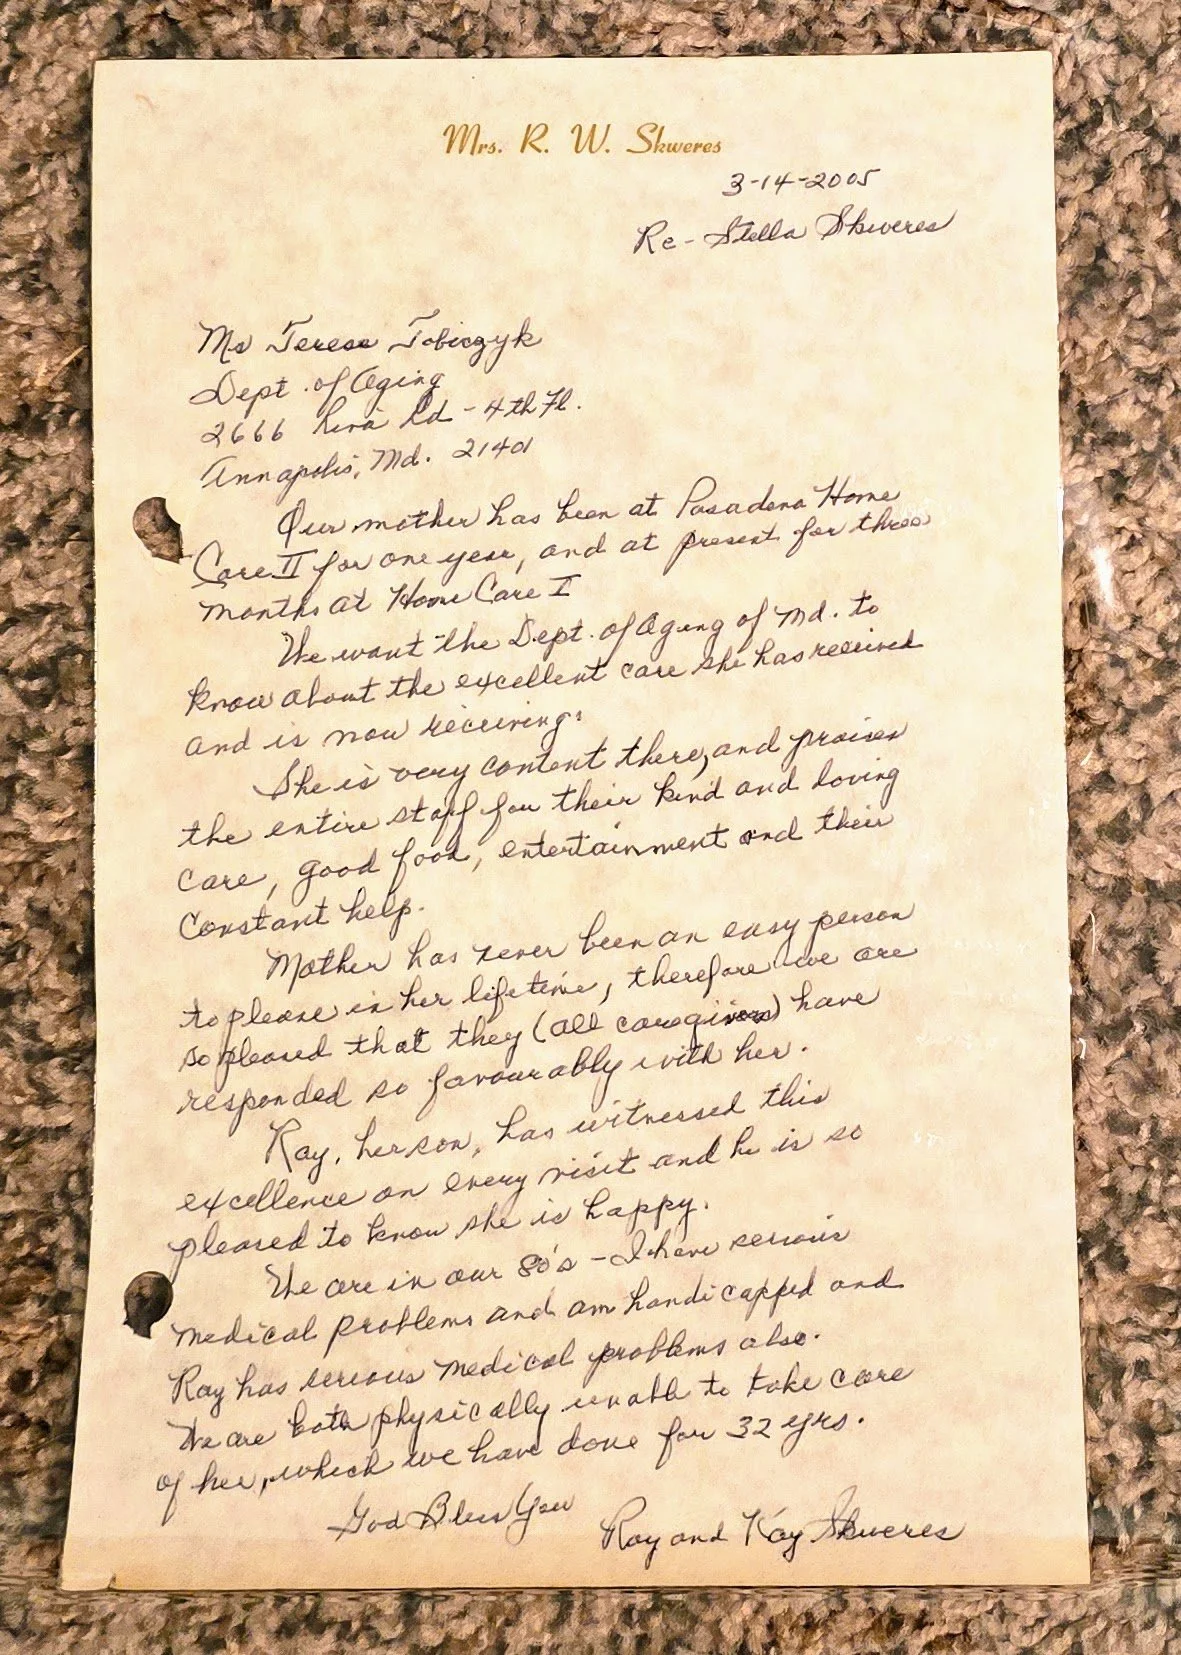 Mrs. R. W. Skweres
3-14-2005
Re - Stella Skweres
Ms Terese Tobiczyk
Dept. of Aging
2666 Riva Rd - 4th Fl.
Annapolis, Md. 21401
Our mother has been at Pasadena Home
Care II for one year, and at present for three
months at Home Care I
We want the Dept. of Aging of Md. to
know about the excellent care she has received
and is now receiving.
She is very content there, and praises
the entire staff for their kind and loving
care, good food, entertainment and their
constant help.
Mother has never been an easy person
to please in her lifetime, therefore we are
so pleased that they (all caregivers) have
responded so favourably with her.
Ray, her son, has witnessed this
excellence on every visit and he is so
pleased to know she is happy.
We are in our 80's - I have serious
medical problems and am handicapped and
Ray has serious medical problems also.
We are both physically unable to take care
of her, which we have done for 32 yrs.
God Bless You
Ray and Kay Skweres